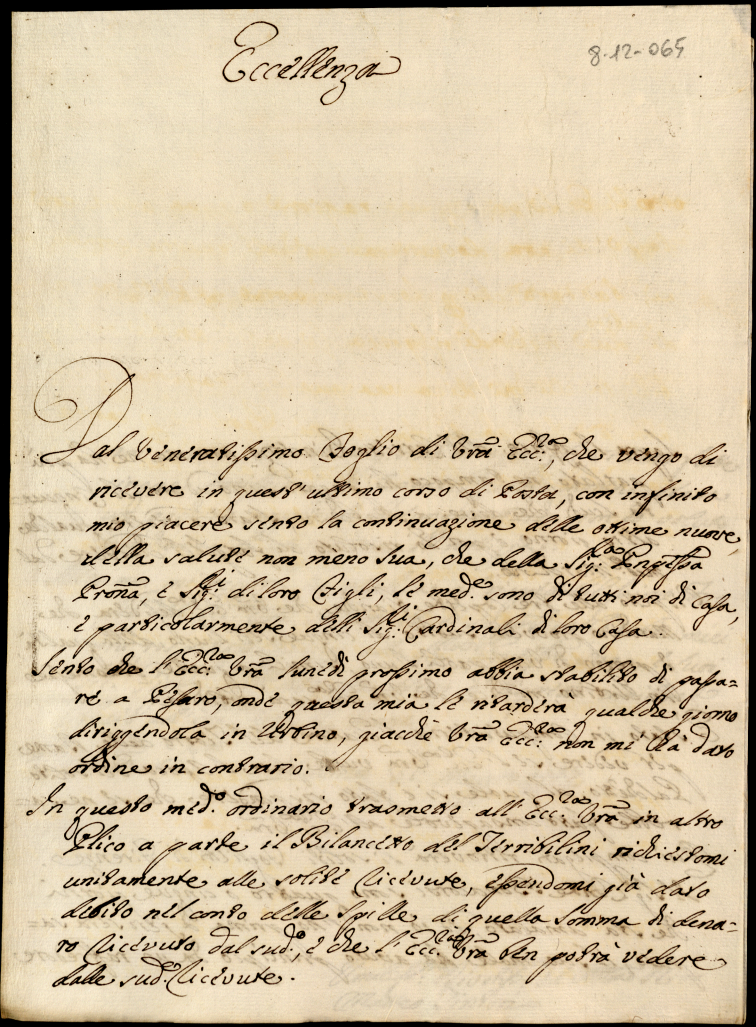 Eccellenza
8-12-065
Dal Veneratissimo Foglio di Vrã Ecc:za, che vengo di
ricevere in quest'ultimo corso di Posta, con infinito
mio piacere sento la continuazione delle ottime nuove
della salute non meno sua, che della Sig:ra Pnp̃essa
ProñA, e Sig:ri di loro Figli, le med:e sono di tutti noi di Casa,
e particolarmente delli Sig:ri Cardinali di loro Casa.
Sento che l'Ecc:za Vrã lunedì prossimo abbia stabilito di passa=
re a Pesaro, onde questa mia le ritarderà qualche giorno
diriggendola in Urbino, giacchè Vrã Ecc:za non mi hà dato
ordine in contrario.
In questo med:o ordinario trasmetto all'Ecc:za Vrã in altro
Plico a parte il Bilancetto del Terribilini richiestomi
unitamente alle solite ricevute, essendomi già dato
debito nel conto delle Spille di quella somma di dena=
ro ricevuto dal sud:o, e che l'Ecc:za Vrã ben potrà vedere
dalle sud:e ricevute.